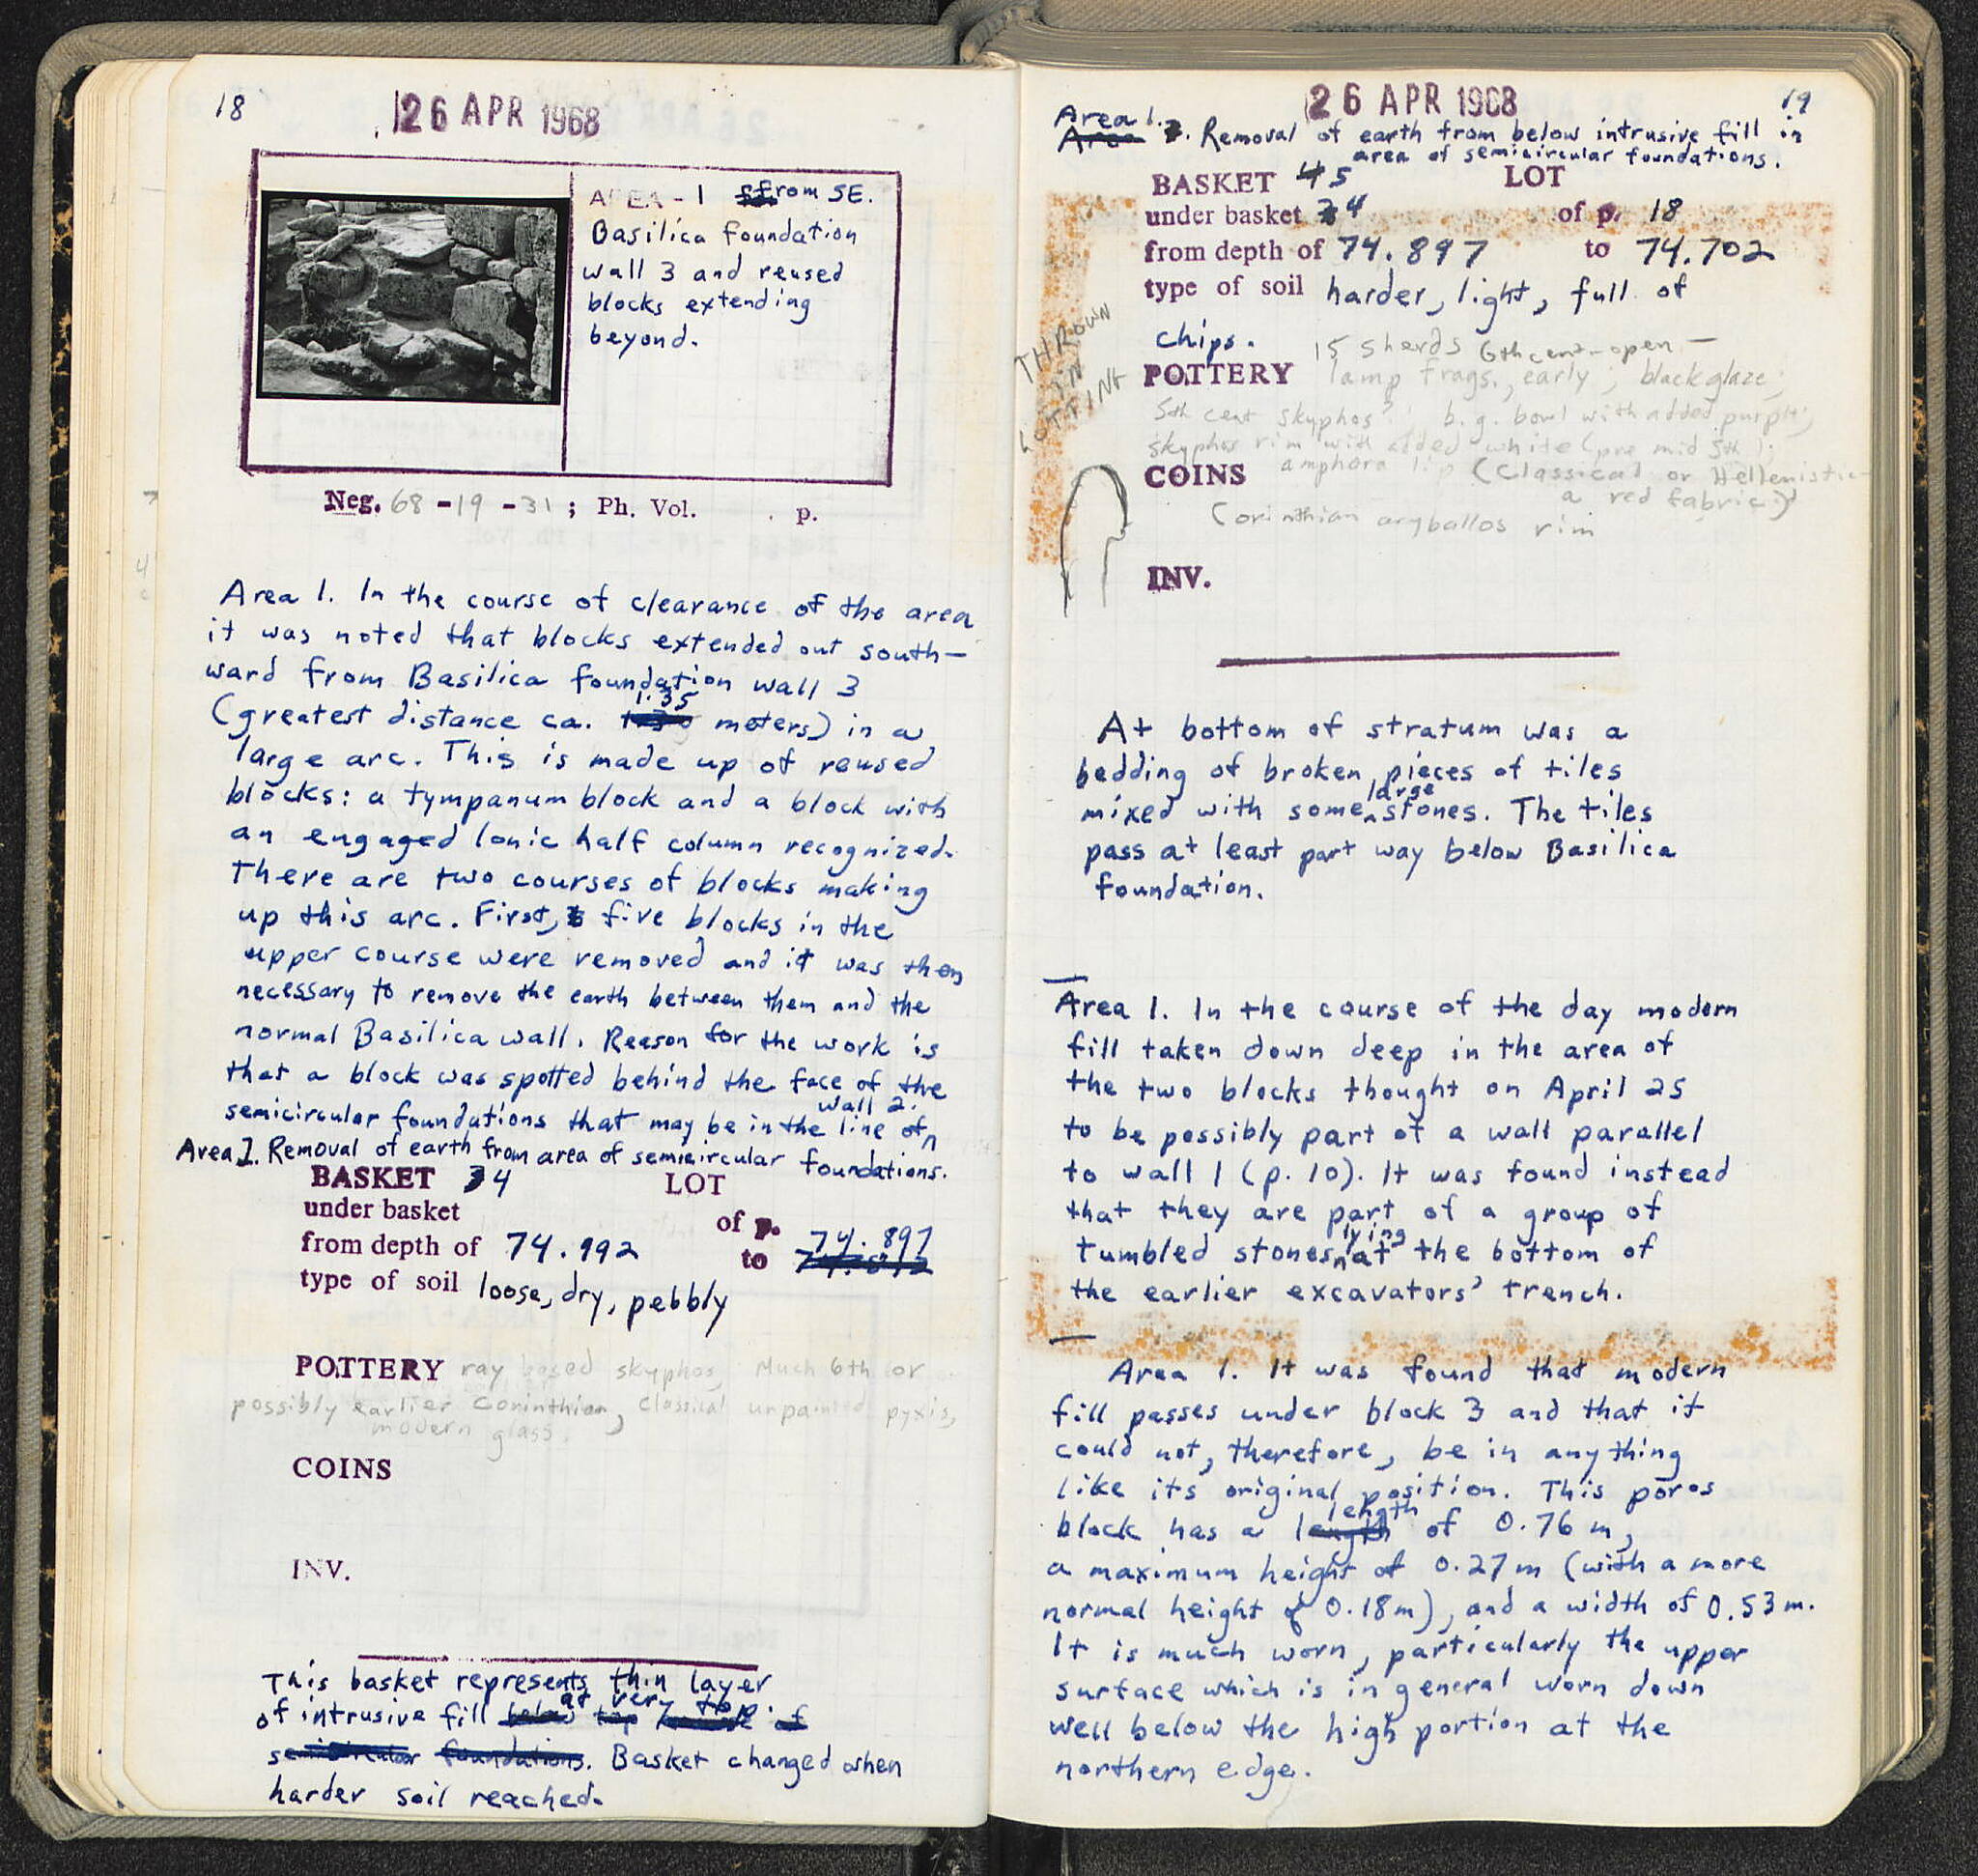 18
26 APR 1968
AREA - 1 from SE.
Basilica foundation
wall 3 and reused
blocks extending
beyond.
Neg. 68 - 19 - 31 ; Ph. Vol. p.
Area 1. In the course of clearance of the area
it was noted that blocks extended out south-
ward from Basilica foundation wall 3
(greatest distance ca. 1.35 meters) in a
large arc. This is made up of reused
blocks: a tympanum block and a block with
an engaged Ionic half column recognized.
There are two courses of blocks making
up this arc. First, five blocks in the
upper course were removed and it was then
necessary to remove the earth between them and the
normal Basilica wall. Reason for the work is
that a block was spotted behind the face of the
semicircular foundations that may be in the line of wall 2.
Area 1. Removal of earth from area of semicircular foundations.
BASKET 4 LOT
under basket of p.
from depth of 74.992 to 74.897
type of soil loose, dry, pebbly
POTTERY ray based skyphos, Much 6th or
possibly earlier Corinthian, Classical unpainted pyxis,
modern glass.
COINS
INV.
This basket represents thin layer
of intrusive fill at very top.
Basket changed when
harder soil reached.
26 APR 1968
19
Area 1. Removal of earth from below intrusive fill in
area of semicircular foundations.
BASKET 5 LOT
under basket 4 of p. 18
from depth of 74.897 to 74.702
type of soil harder, light, full of
chips.
THROWN
IN
LOT TINS
POTTERY 15 sherds 6th cent - open -
lamp frags., early; black glaze;
5th cent skyphos?; b.g. bowl with added purple;
skyphos rim with added white (pre mid 5th);
COINS amphora lip (Classical or Hellenistic
a red fabric)
Corinthian aryballos rim
INV.
At bottom of stratum was a
bedding of broken pieces of tiles
mixed with some large stones. The tiles
pass at least part way below Basilica
foundation.
Area 1. In the course of the day modern
fill taken down deep in the area of
the two blocks thought on April 25
to be possibly part of a wall parallel
to wall 1 (p. 10). It was found instead
that they are part of a group of
tumbled stones lying at the bottom of
the earlier excavators' trench.
Area 1. It was found that modern
fill passes under block 3 and that it
could not, therefore, be in anything
like its original position. This poros
block has a length of 0.76 m,
a maximum height of 0.27 m (with a more
normal height of 0.18 m), and a width of 0.53 m.
It is much worn, particularly the upper
surface which is in general worn down
well below the high portion at the
northern edge.